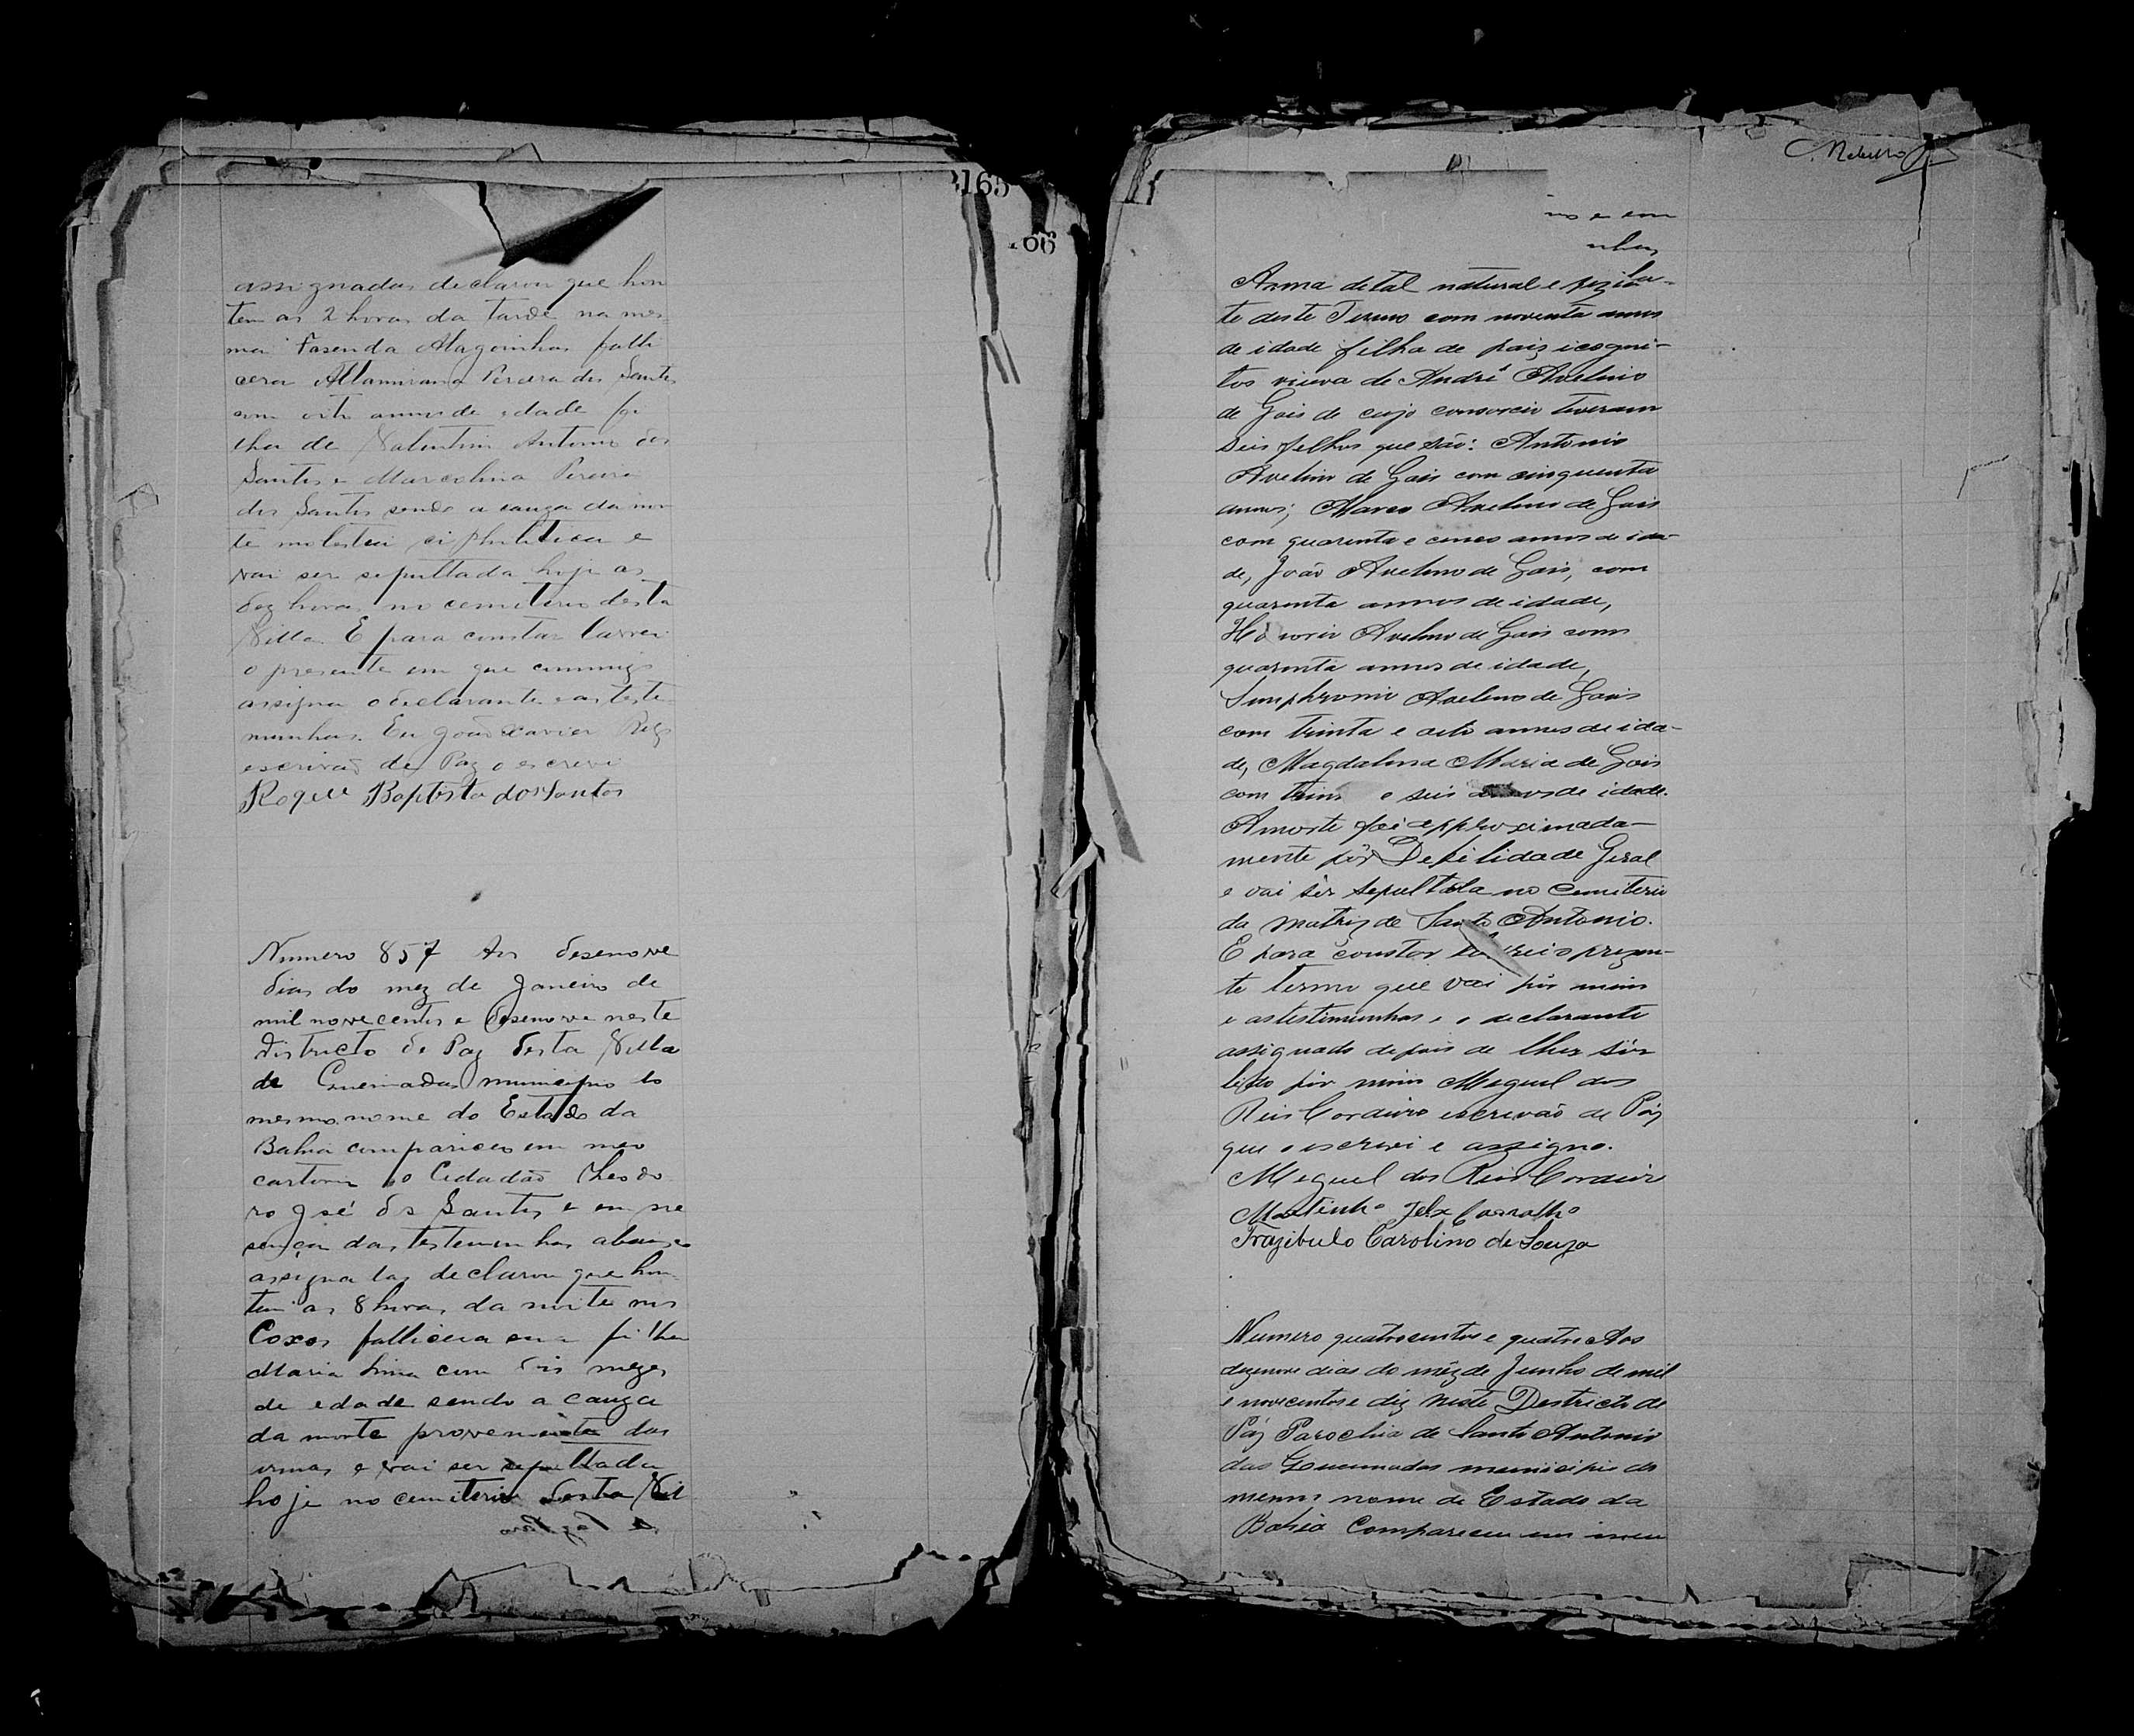 165
assignadas declarou que hon
tem as 2 horas da tarde na mes-
ma Fasenda Alagoinhas falli
cera Altamirana Pereira dos Santos
com oito annos de edade fi
lha de Valentim Antonio dos
Santos e Marcolina Pereira
dos Santos sendo a cauza da mor
te molestia siphilitica e
vai ser sepultada hoje as
dez horas no cemiterio desta
Villa E para constar lavrei
o presente em que commigo
assigna o declarante e as teste
munhas. Eu João Xavier Reis
escrivão de Paz o escrevi
Roque Baptista dos Santos
Numero 857 Aos desenove
dias do mez de Janeiro de
mil novecentos e desenove neste
districto de Paz desta Villa
de Queimadas municipio do
mesmo nome do Estado da
Bahia compareceu em meo
cartorio o Cidadão Theodo
ro José dos Santos e em pre
sença das testemunhas abaixo
assignadas declarou que hon-
tem as 8 horas da noite nos
Coxos fallicera sua filha
Maria com dois mezes
de edade sendo a cauza
da morte proveniente das
e vai ser sepultada
hoje no cemiterio desta Vil
66
no e em
nhas
Anna de tal natural e rezida-
te deste Termo com noventa annos
de idade filha de paiz icogni-
tos viuva de André Avelino
de Gois de cujo consorcio tiveram
seis filhos que são: Antonio
Avelino de Gois com cinquenta
annos; Marco Avelino de Gois
com quarenta e cinco annos de ida-
de, João Avelino de Gois, com
quarenta annos de idade,
Honorio Avelino de Gois com
quarenta annos de idade,
Simphronio Avelino de Gois
com trinta e oito annos de ida-
de, Magdalena Maria de Gois
com trin e seis annos de idade.
A morte foi approximada-
mente pôr Debilidade Geral
e vai sêr sepultada no Cemiterio
da Matriz de Santo Antonio.
E para constar lavrei o prezen-
te termo que vai pôr mim
e as testimunhas e o declarante
assignado depois de lhes sêr
lido pôr mim Miguel dos
Reis Cordeiro escrevão de Páz
que o escrevi e assigno.
Miguel dos Reis Cordeiro
Martinho Felix Carvalho
Trazibulo Carolino de Souza
Numero quatrocentos e quatro Aos
dezenove dias do mêz de Junho de mil
e novecentos e diz neste Destricto de
Páz Parochia de Santo Antonio
das Queimadas municipio do
mesmo nome do Estado da
Bahia Compareceu em meu